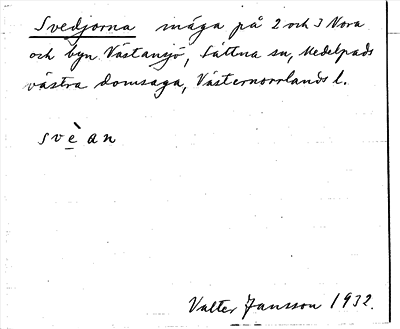 Svedjorna måga på 2 och 3 Nora
och byn Västansjö, Sättna sn, Medelpads
västra domsaga, Västernorrlands l.
svè̲an
Valter Jansson 1932.